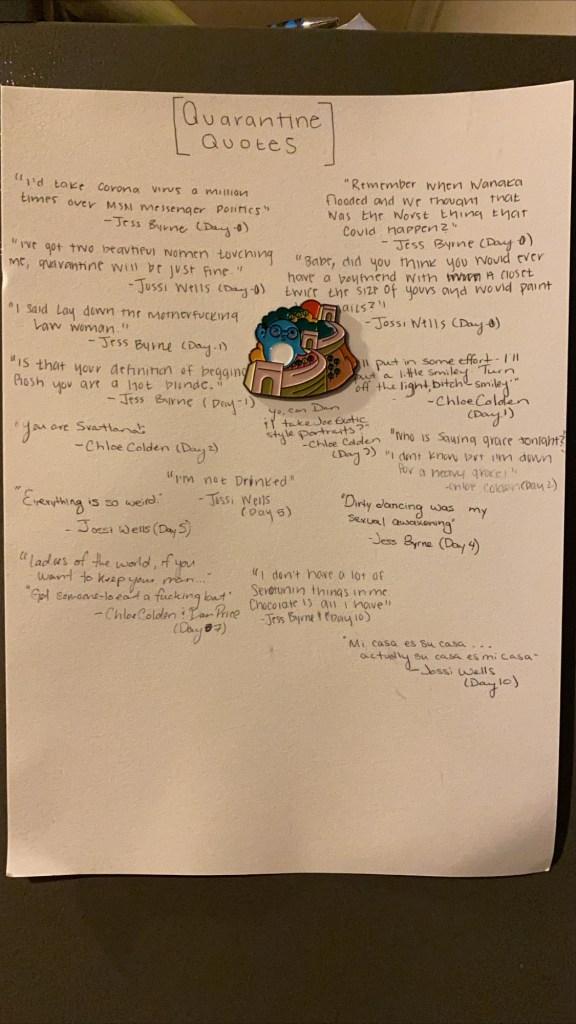 Quarantine
Quotes
"I'd take corona virus a million
times over MSN messenger politics"
- Jess Byrne (Day 0)
"Remember when Wanaka
flooded and we thought that
was the worst thing that
could happen?"
- Jess Byrne (Day 0)
"I've got two beautiful women touching
me, quarantine will be just fine."
- Jossi Wells (Day 0)
"Babe, did you think you would ever
have a boyfriend with a closet
twice the size of yours and would paint
ails?"
- Jossi Wells (Day 0)
"I said lay down the motherfucking
law woman."
- Jess Byrne (Day 1)
"Is that your definition of begging
you are a hot blonde."
- Jess Byrne (Day 1)
put in some effort - I'll
put a little smiley. Turn
off the light, bitch - smiley"
- Chloe Colden
(Day 1)
yo, can Dan
take Joe Exotic
style portraits?"
- Chloe Colden
(Day 2)
"You are
- Chloe Colden (Day 2)
"Who is saying grace tonight?"
"I dont know but I'm down
for a heavy grace!"
- Chloe Colden (Day 2)
"I'm not Drinked"
- Jossi Wells
(Day 5)
"Everything is so weird."
- Jossi Wells (Day 5)
"Dirty dancing was my
sexual awakening"
- Jess Byrne (Day 4)
"Ladies of the world, if you
want to keep your man..."
"Get someone to eat a fucking but"
- Chloe Colden & Dan Price
(Day 7)
"I don't have a lot of
Serotonin things in me
Chocolate is all I have"
- Jess Byrne (Day 10)
"Mi casa es su casa ...
actually su casa es mi casa"
- Jossi Wells
(Day 10)